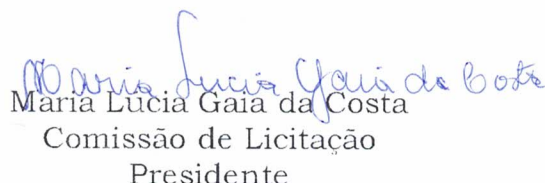 Maria Lucia Gaia da Costa
Maria Lucia Gaia da Costa
Comissão de Licitação
Presidente